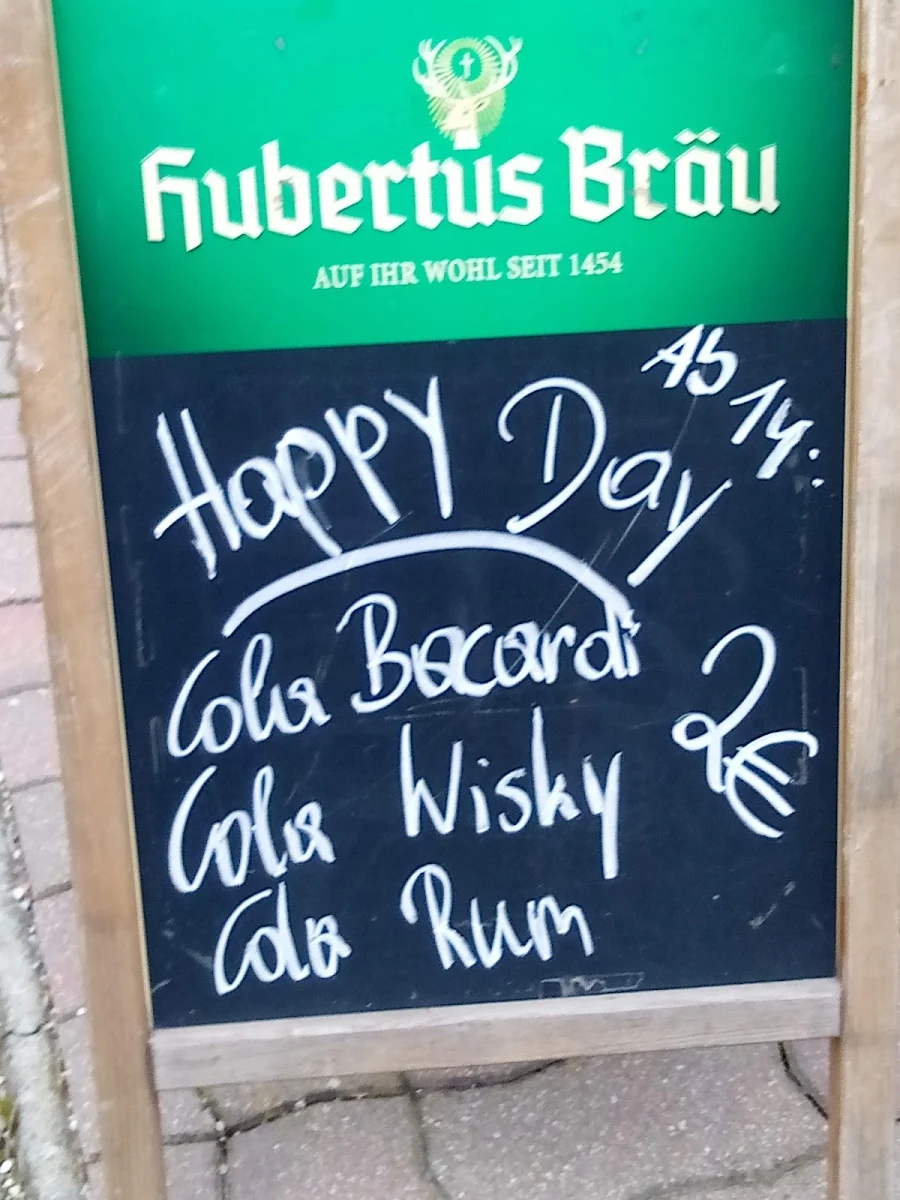 Hubertus Bräu
AUF IHR WOHL SEIT 1454
Ab 14:
Happy Day
Cola Bacardi
2€
Cola Wisky
Cola Rum